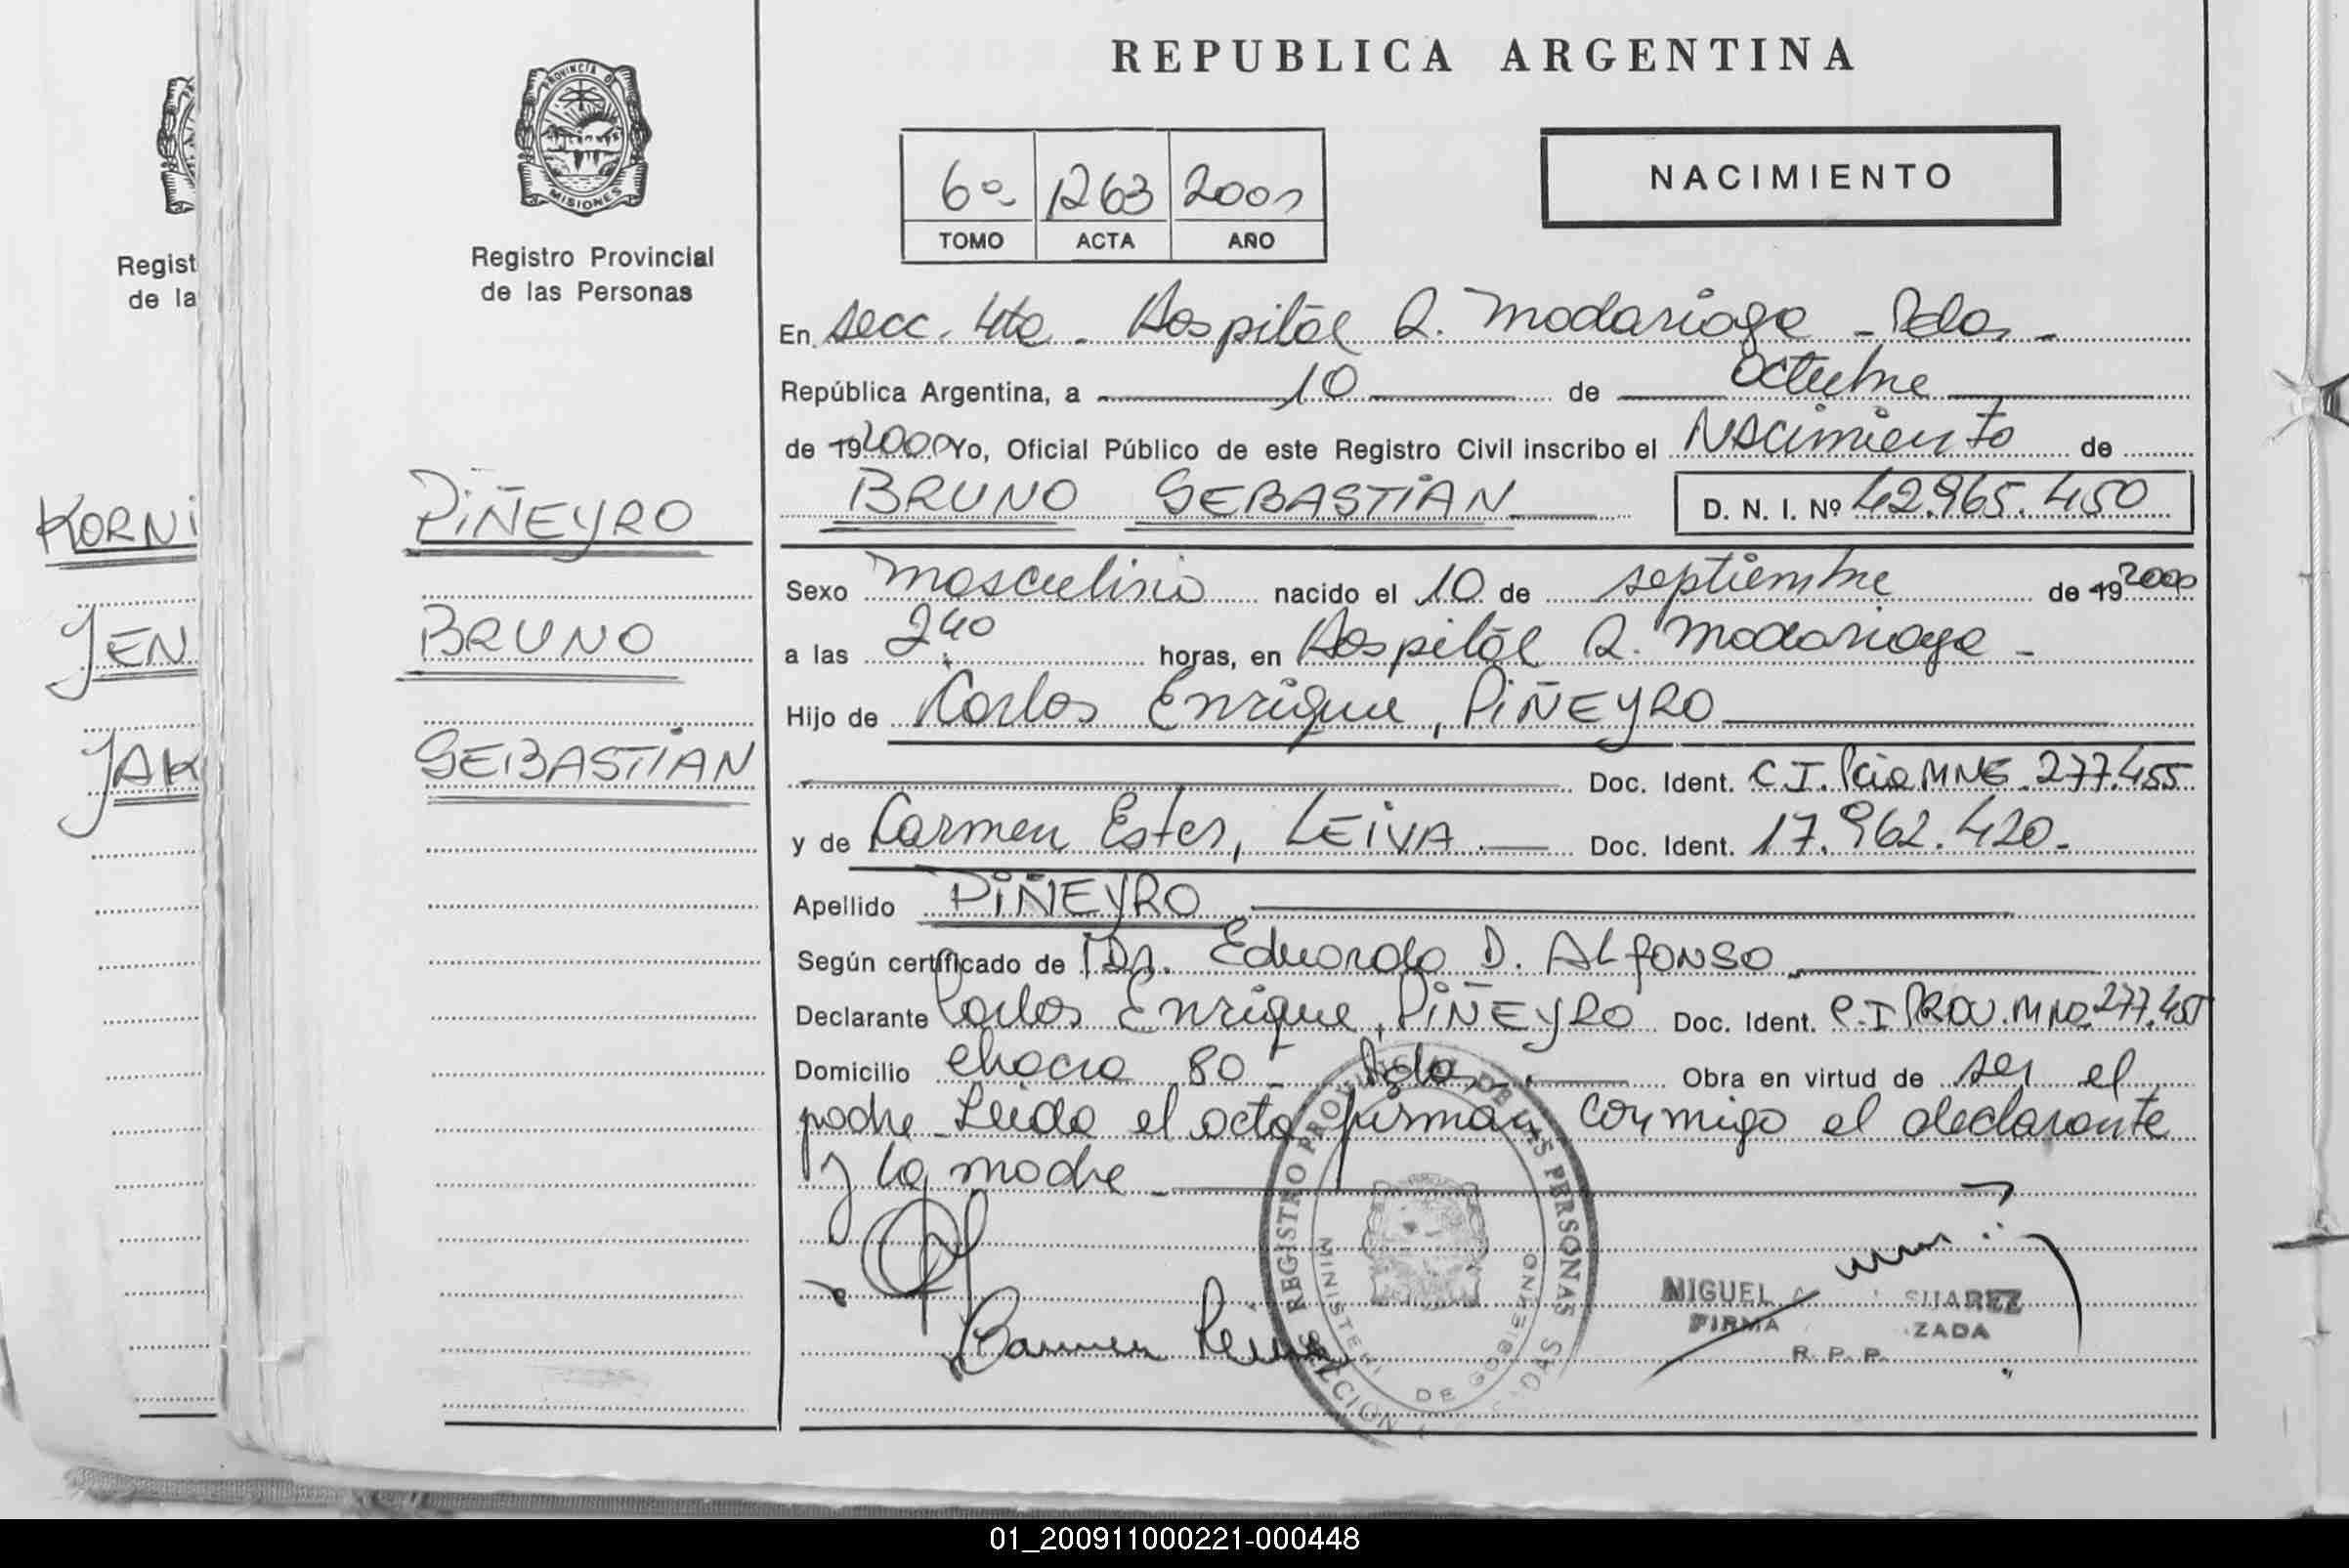 REPUBLICA ARGENTINA
PROVINCIA DE
MISIONES
Registro Provincial
de las Personas
Regist
de la
6º 1263 2000
TOMO ACTA AÑO
NACIMIENTO
En secc. 4ta. Hospital R. Madariaga - Pdas -
República Argentina, a 10 de Octubre
de 19 2000 Yo, Oficial Público de este Registro Civil inscribo el Nacimiento de
BRUNO SEBASTIAN D. N. I. Nº 42.965.450
KORNI
PIÑEYRO
JEN
BRUNO
JAK
SEBASTIAN
Sexo masculino nacido el 10 de septiembre de 19 2000
a las 2 40 horas, en Hospital R. Madariaga -
Hijo de Carlos Enrique, PIÑEYRO
Doc. Ident. C.I. Pcia MNES. 277.455
y de Carmen Ester, LEIVA Doc. Ident. 17.962.420.
Apellido PIÑEYRO
Según certificado de Dr. Eduardo D. ALFONSO
Declarante Carlos Enrique, PIÑEYRO Doc. Ident. C.I PROV. 277.455
Domicilio chacra 80 - Pdas Obra en virtud de ser el
padre - Leida el acta firman conmigo el declarante
y la madre -
REGISTRO PROVINCIAL DE LAS PERSONAS
MINISTERI DE GOBIERNO
SECCION
Carmen Leiva
MIGUEL SUAREZ
FIRMA ZADA
R. P. P.
01_200911000221-000448